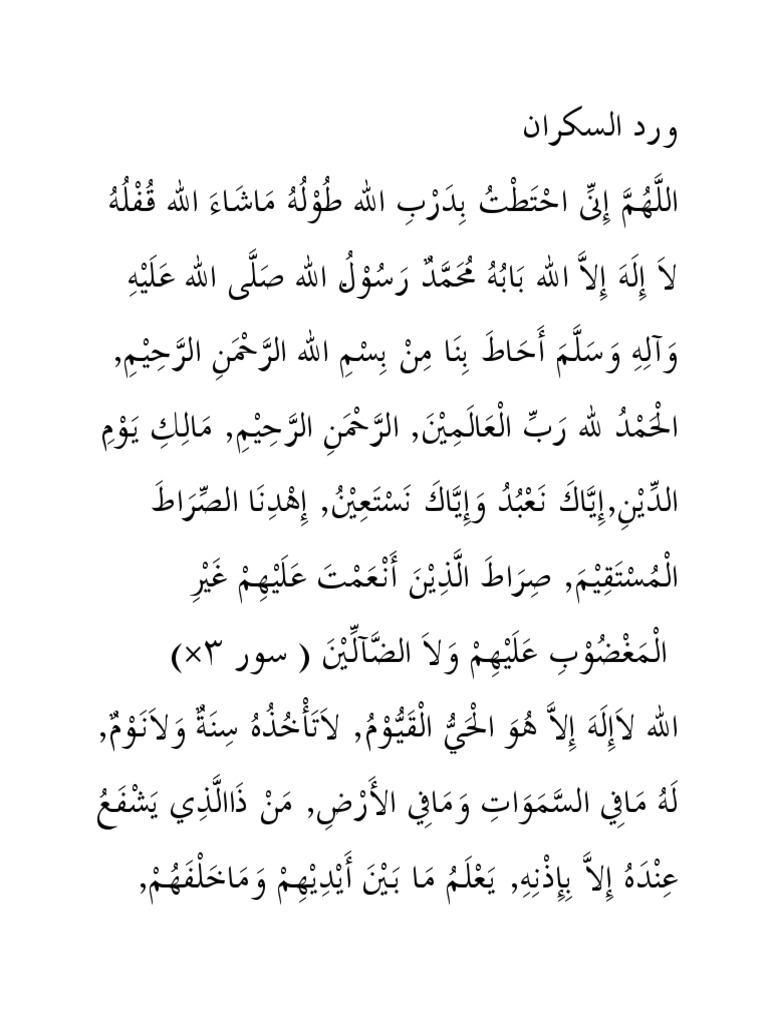 ورد السكران
اللَّهُمَّ إِنِّى احْتَطْتُ بِدَرْبِ الله طُوْلُهُ مَاشَاءَ الله قُفْلُهُ
لاَ إِلَهَ إِلاَّ الله بَابُهُ مُحَمَّدٌ رَسُوْلُ الله صَلَّى الله عَلَيْهِ
وَآلِهِ وَسَلَّمَ أَحَاطَ بِنَا مِنْ بِسْمِ الله الرَّحْمَنِ الرَّحِيْمِ,
الْحَمْدُ لله رَبِّ الْعَالَمِيْنَ, الرَّحْمَنِ الرَّحِيْمِ, مَالِكِ يَوْمِ
الدِّيْنِ,إِيَّاكَ نَعْبُدُ وَإِيَّاكَ نَسْتَعِيْنُ, إِهْدِنَا الصِّرَاطَ
الْمُسْتَقِيْمَ, صِرَاطَ الَّذِيْنَ أَنْعَمْتَ عَلَيْهِمْ غَيْرِ
الْمَغْضُوْبِ عَلَيْهِمْ وَلاَ الضَّآلِّيْنَ ( سور ٣×)
الله لاَإِلَهَ إِلاَّ هُوَ الْحَيُّ الْقَيُّوْمُ, لاَتَأْخُذُهُ سِنَةٌ وَلاَنَوْمٌ,
لَهُ مَافِي السَّمَوَاتِ وَمَافِي الأَرْضِ, مَنْ ذَاالَّذِي يَشْفَعُ
عِنْدَهُ إِلاَّ بِإِذْنِهِ, يَعْلَمُ مَا بَيْنَ أَيْدِيْهِمْ وَمَاخَلْفَهُمْ,